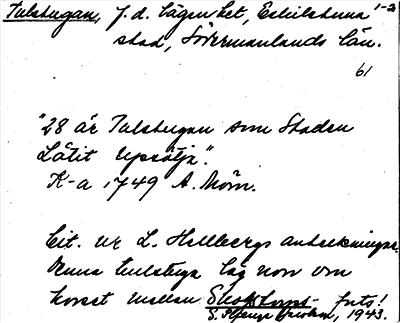 Tulstugan, f.d. lägenhet, Eskilstuna 1-2
stad, Södermanlands län.
61
"28 är Tulstugan som Staden
Låtit Upsätja".
K-a 1749 A. Mörn.
Cit. ur L. Hellbergs anteckningar.
Denna tulstuga låg norr om
torget mellan forts!
1943.